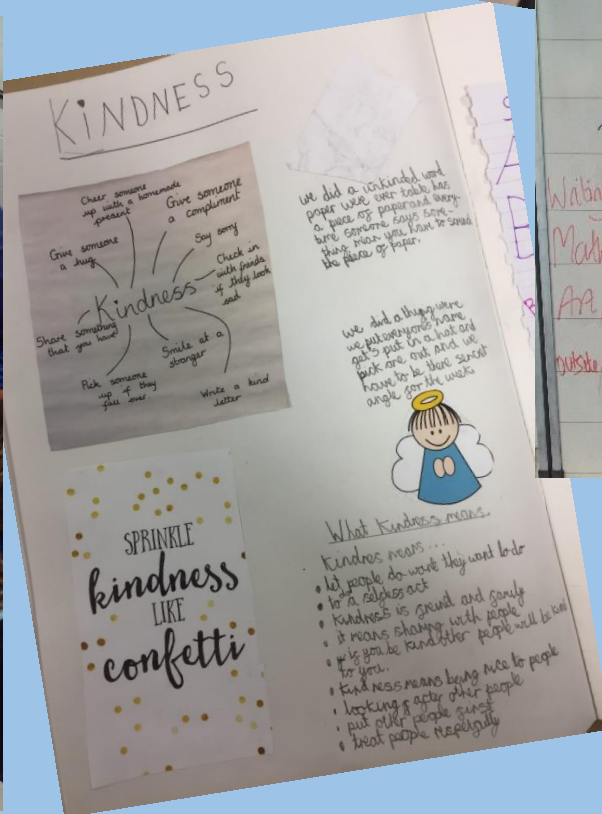 KINDNESS
Cheer someone
up with a homemade
present
Give someone
a compliment
Give someone
a hug
Say sorry
Check in
with friends
if they look
sad
Kindness
Share something
that you have
Smile at a
stranger
Pick someone
up if they
fall over
Write a kind
letter
we did a unkinded word
paper were ever table has
a piece of paper and every-
time someone says some-
thing mean you have to
the piece of paper.
we did a thing were
we put everyone's name
get's put in a hat and
pick one out and we
have to be there secret
angle for the week
SPRINKLE
kindness
LIKE
confetti
What Kindness means.
Kindnes means...
• let people do want they want to do
• to a selgless act
• Kindness is freind and family
• it means sharing with people
• if you be kind other people will be kind
to you.
• Kindness means being nice to people
• looking after other people
• put other people first
• treat people
Writing
Math
Art
outside